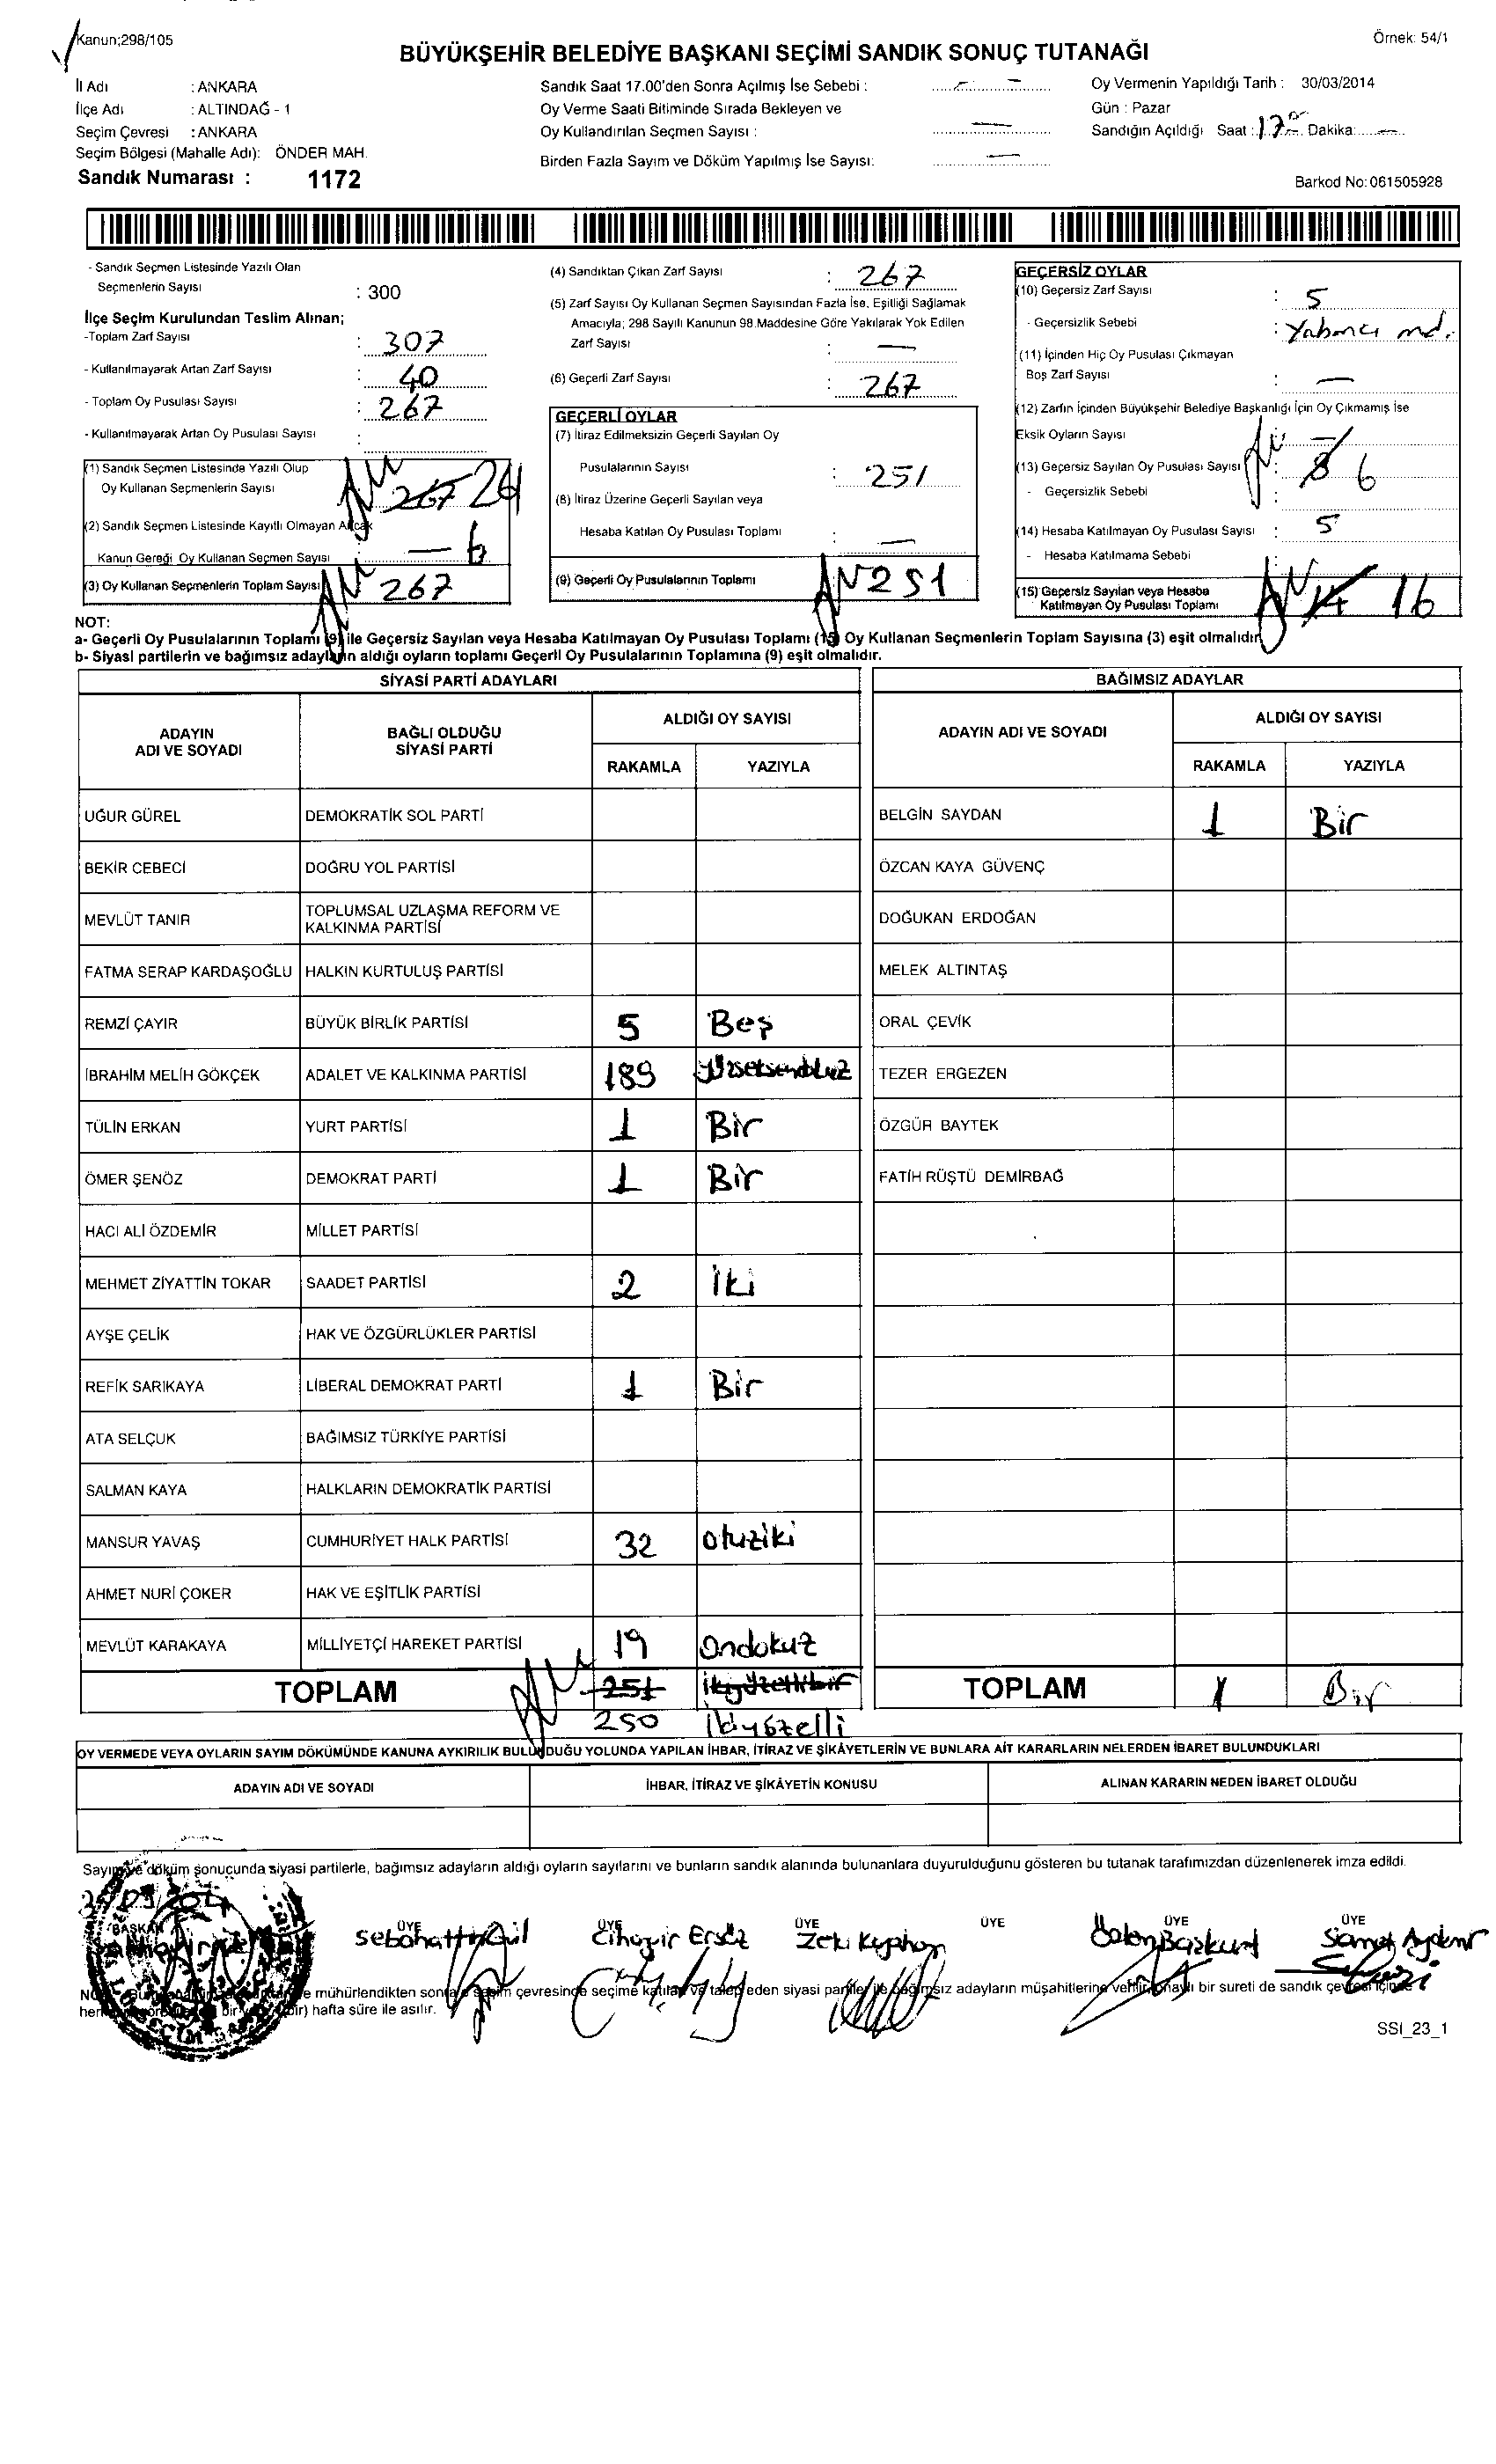 Kanun;298/105
Örnek: 54/1
BÜYÜKŞEHİR BELEDİYE BAŞKANI SEÇİMİ SANDIK SONUÇ TUTANAĞI
İl Adı : ANKARA
İlçe Adı : ALTINDAĞ - 1
Seçim Çevresi : ANKARA
Seçim Bölgesi (Mahalle Adı): ÖNDER MAH.
Sandık Numarası : 1172
Sandık Saat 17.00'den Sonra Açılmış İse Sebebi :
Oy Verme Saati Bitiminde Sırada Bekleyen ve
Oy Kullandırılan Seçmen Sayısı :
Birden Fazla Sayım ve Döküm Yapılmış İse Sayısı:
Oy Vermenin Yapıldığı Tarih : 30/03/2014
Gün : Pazar
Sandığın Açıldığı Saat : 17 Dakika:
Barkod No:061505928
- Sandık Seçmen Listesinde Yazılı Olan
Seçmenlerin Sayısı : 300
İlçe Seçim Kurulundan Teslim Alınan;
-Toplam Zarf Sayısı : 307
- Kullanılmayarak Artan Zarf Sayısı : 40
- Toplam Oy Pusulası Sayısı : 267
- Kullanılmayarak Artan Oy Pusulası Sayısı :
(1) Sandık Seçmen Listesinde Yazılı Olup
Oy Kullanan Seçmenlerin Sayısı 267
(2) Sandık Seçmen Listesinde Kayıtlı Olmayan Ancak
Kanun Gereği Oy Kullanan Seçmen Sayısı — 6
(3) Oy Kullanan Seçmenlerin Toplam Sayısı 267
(4) Sandıktan Çıkan Zarf Sayısı : 267
(5) Zarf Sayısı Oy Kullanan Seçmen Sayısından Fazla İse, Eşitliği Sağlamak
Amacıyla; 298 Sayılı Kanunun 98.Maddesine Göre Yakılarak Yok Edilen
Zarf Sayısı : —
(6) Geçerli Zarf Sayısı : 267
GEÇERLİ OYLAR
(7) İtiraz Edilmeksizin Geçerli Sayılan Oy
Pusulalarının Sayısı : 251
(8) İtiraz Üzerine Geçerli Sayılan veya
Hesaba Katılan Oy Pusulası Toplamı : —
(9) Geçerli Oy Pusulalarının Toplamı 251
GEÇERSİZ OYLAR
(10) Geçersiz Zarf Sayısı : 5
- Geçersizlik Sebebi : Yabancı md.
(11) İçinden Hiç Oy Pusulası Çıkmayan
Boş Zarf Sayısı : —
(12) Zarfın İçinden Büyükşehir Belediye Başkanlığı İçin Oy Çıkmamış İse
Eksik Oyların Sayısı : —
(13) Geçersiz Sayılan Oy Pusulası Sayısı 8 6
- Geçersizlik Sebebi :
(14) Hesaba Katılmayan Oy Pusulası Sayısı : 5
- Hesaba Katılmama Sebebi :
(15) Geçersiz Sayılan veya Hesaba
Katılmayan Oy Pusulası Toplamı 14 16
NOT:
a- Geçerli Oy Pusulalarının Toplamı (9) ile Geçersiz Sayılan veya Hesaba Katılmayan Oy Pusulası Toplamı (15) Oy Kullanan Seçmenlerin Toplam Sayısına (3) eşit olmalıdır.
b- Siyasi partilerin ve bağımsız adayların aldığı oyların toplamı Geçerli Oy Pusulalarının Toplamına (9) eşit olmalıdır.
SİYASİ PARTİ ADAYLARI
ADAYIN ADI VE SOYADI BAĞLI OLDUĞU SİYASİ PARTİ ALDIĞI OY SAYISI
RAKAMLA YAZIYLA
UĞUR GÜREL DEMOKRATİK SOL PARTİ
BEKİR CEBECİ DOĞRU YOL PARTİSİ
MEVLÜT TANIR TOPLUMSAL UZLAŞMA REFORM VE KALKINMA PARTİSİ
FATMA SERAP KARDAŞOĞLU HALKIN KURTULUŞ PARTİSİ
REMZİ ÇAYIR BÜYÜK BİRLİK PARTİSİ 5 Beş
İBRAHİM MELİH GÖKÇEK ADALET VE KALKINMA PARTİSİ 189
TÜLİN ERKAN YURT PARTİSİ 1 Bir
ÖMER ŞENÖZ DEMOKRAT PARTİ 1 Bir
HACI ALİ ÖZDEMİR MİLLET PARTİSİ
MEHMET ZİYATTİN TOKAR SAADET PARTİSİ 2 İki
AYŞE ÇELİK HAK VE ÖZGÜRLÜKLER PARTİSİ
REFİK SARIKAYA LİBERAL DEMOKRAT PARTİ 1 Bir
ATA SELÇUK BAĞIMSIZ TÜRKİYE PARTİSİ
SALMAN KAYA HALKLARIN DEMOKRATİK PARTİSİ
MANSUR YAVAŞ CUMHURİYET HALK PARTİSİ 32 otuziki
AHMET NURİ ÇOKER HAK VE EŞİTLİK PARTİSİ
MEVLÜT KARAKAYA MİLLİYETÇİ HAREKET PARTİSİ 19 Ondokuz
TOPLAM 251 ikiyüzellibir
250 ikiyüzelli
BAĞIMSIZ ADAYLAR
ADAYIN ADI VE SOYADI ALDIĞI OY SAYISI
RAKAMLA YAZIYLA
BELGİN SAYDAN 1 Bir
ÖZCAN KAYA GÜVENÇ
DOĞUKAN ERDOĞAN
MELEK ALTINTAŞ
ORAL ÇEVİK
TEZER ERGEZEN
ÖZGÜR BAYTEK
FATİH RÜŞTÜ DEMİRBAĞ
TOPLAM 1 Bir
OY VERMEDE VEYA OYLARIN SAYIM DÖKÜMÜNDE KANUNA AYKIRILIK BULUNDUĞU YOLUNDA YAPILAN İHBAR, İTİRAZ VE ŞİKÂYETLERİN VE BUNLARA AİT KARARLARIN NELERDEN İBARET BULUNDUKLARI
ADAYIN ADI VE SOYADI İHBAR, İTİRAZ VE ŞİKÂYETİN KONUSU ALINAN KARARIN NEDEN İBARET OLDUĞU
Sayım ve döküm sonucunda siyasi partilerle, bağımsız adayların aldığı oyların sayılarını ve bunların sandık alanında bulunanlara duyurulduğunu gösteren bu tutanak tarafımızdan düzenlenerek imza edildi.
BAŞKAN ÜYE ÜYE ÜYE ÜYE ÜYE ÜYE
Sebahattin Gül Zeki
mühürlendikten sonra seçim çevresinde seçime katılan ve talep eden siyasi partiler ile bağımsız adayların müşahitlerine verilir, onaylı bir sureti de sandık çevresi içinde
hafta süre ile asılır.
SSI_23_1